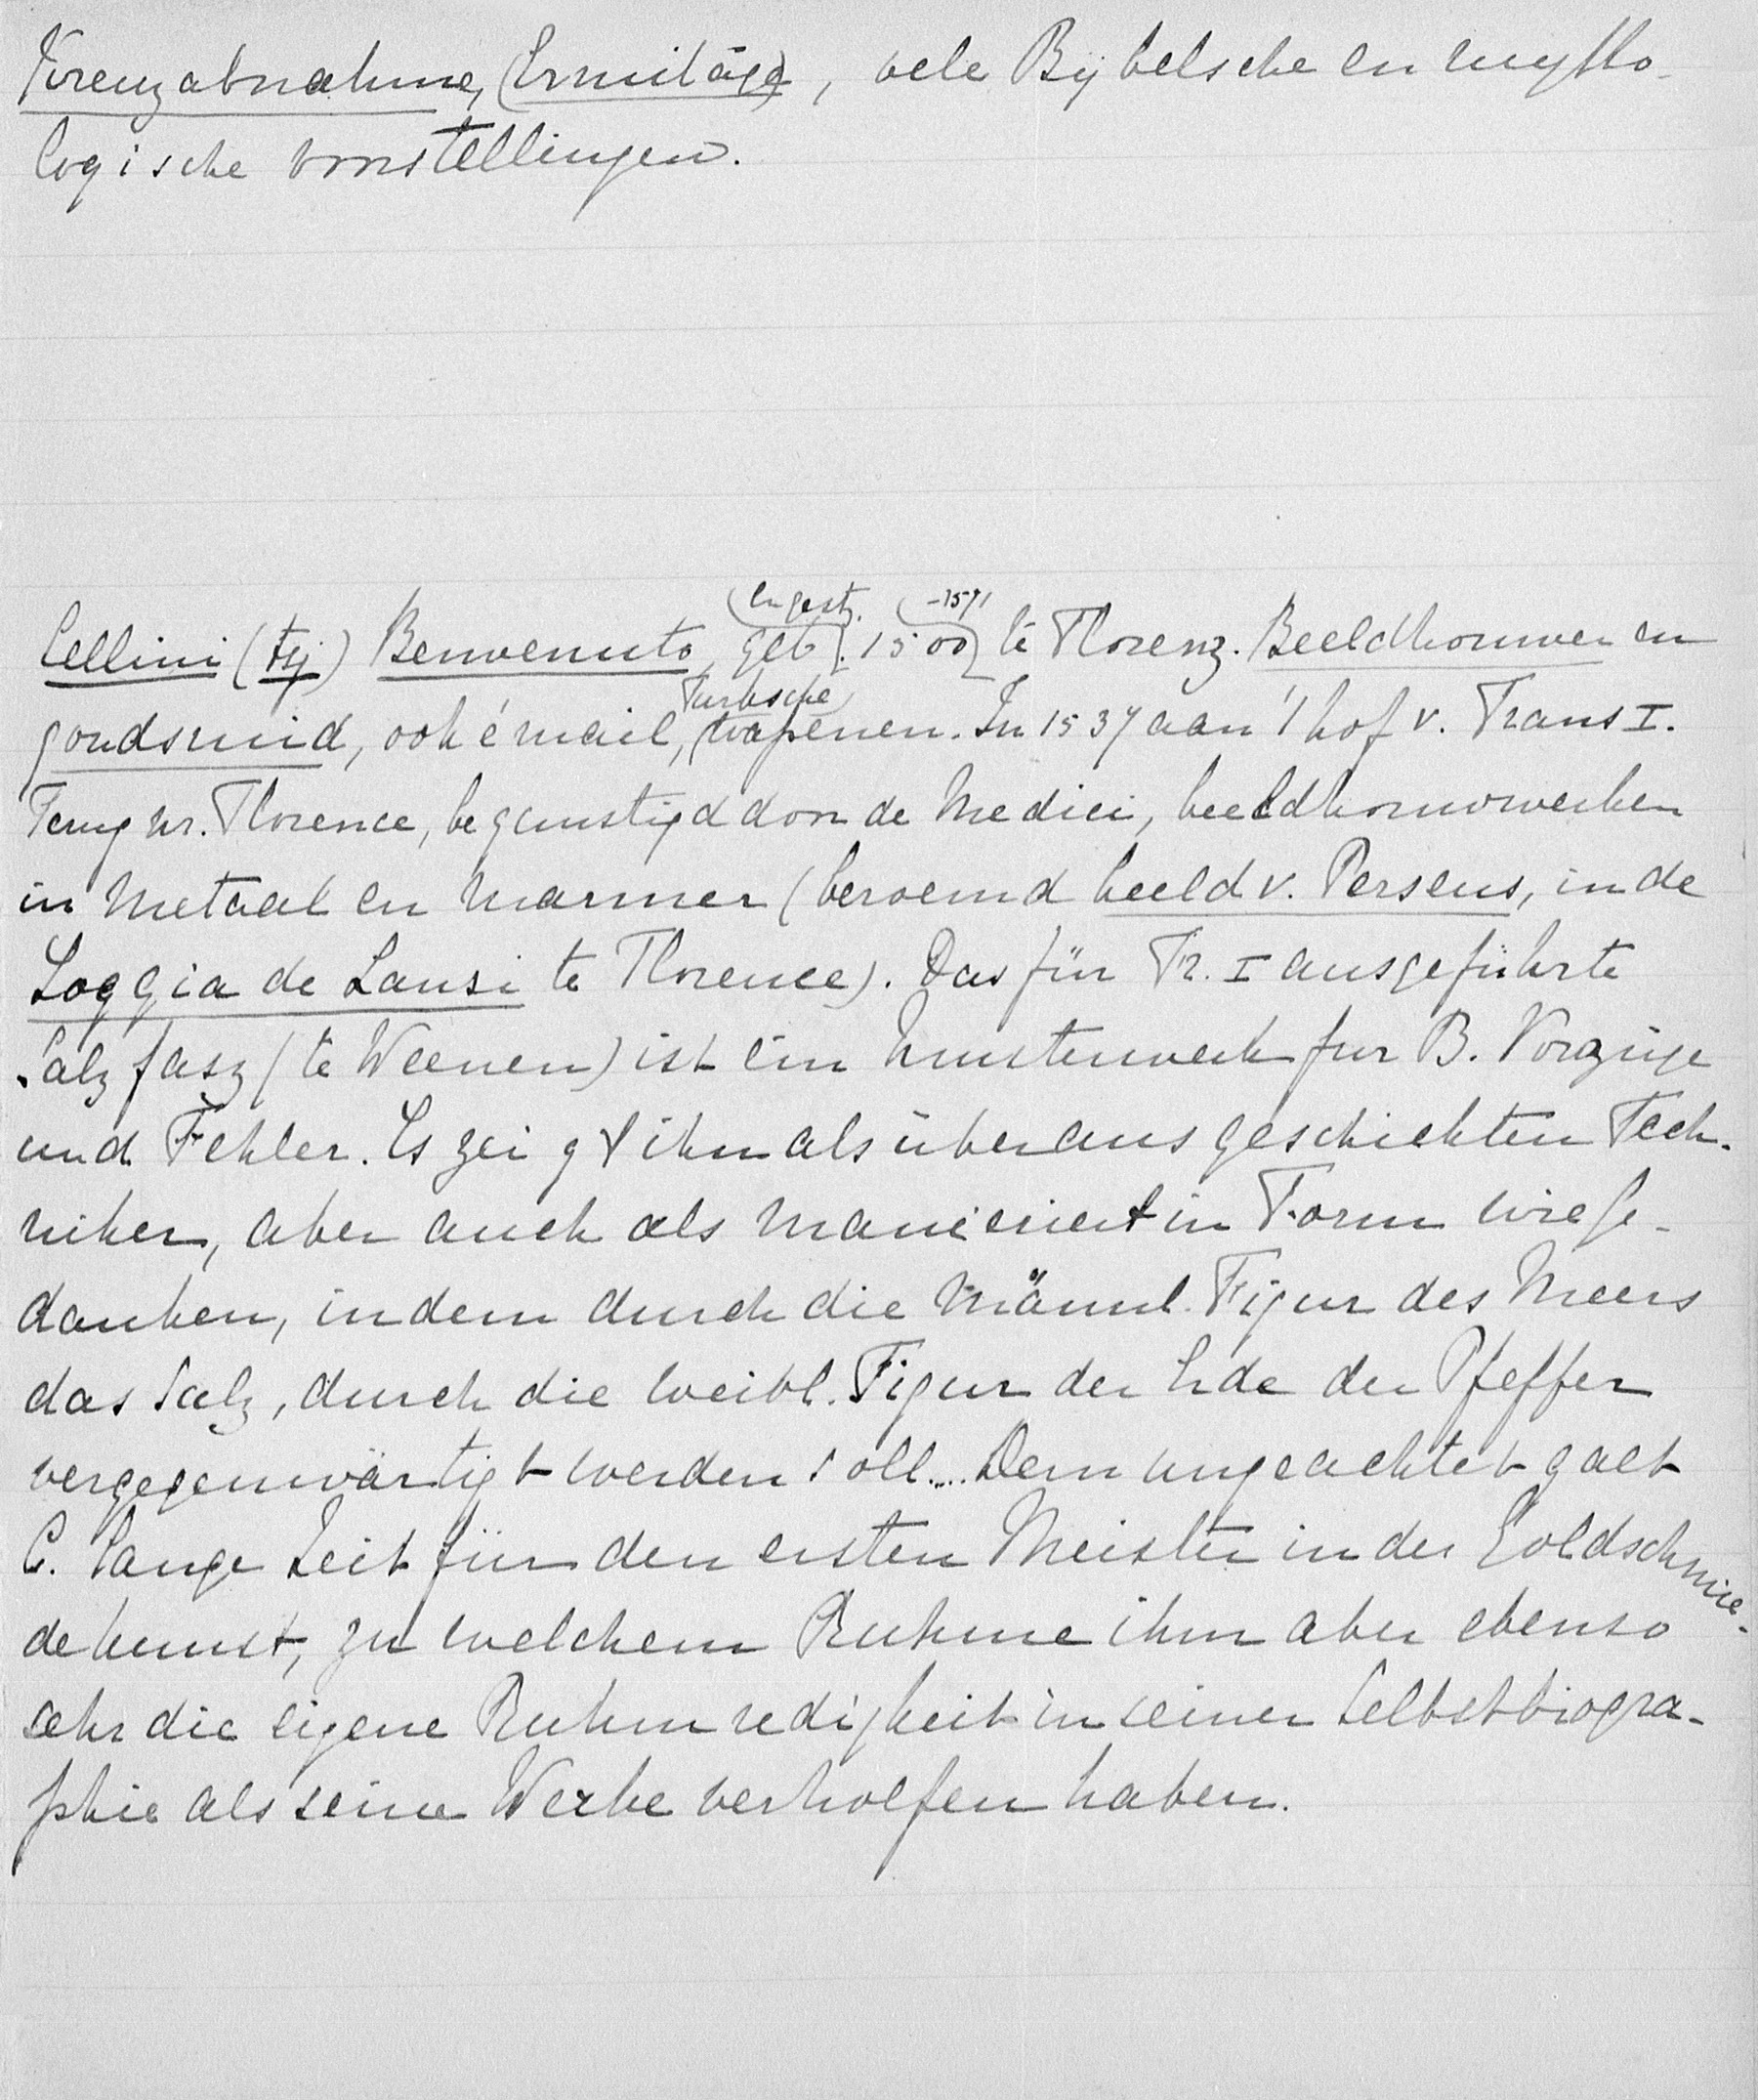 Kreuzabnahme, (Ermitage), vele Bijbelsche en mytho-
logische voorstellingen.
(en gest. (-1571
Cellini (tsj) Benvenuto, geb. 1500 te Florenz. Beeldhouwer en
Turksche
goudsmid, ook émail, wapenen. In 1537 aan 't hof v. Frans I.
Terug nr. Florence, begunstigd door de Medici, beeldhouwwerken
in metaal en marmer (beroemd beeld v. Perseus, in de
Loggia de Lansi te Florence). Das für Fr. I ausgeführte
Salzfasz (te Weenen) ist ein Musterwerk fur B. Vorzüge
und Fehler. Es zeigt ihn als überaus geschickten Tech-
niker, aber auch als manieriert in Form wie Ge-
danken, indem durch die männl. Figur des Meers
das Salz, durch die weibl. Figur der Erde der Pfeffer
vergegenwärtigt werden soll.... Dem ungeachtet galt
C. lange Zeit für den ersten Meister in der Goldschmie-
dekunst, zu welchem Ruhme ihm aber ebenso
sehr die eigene Ruhmredigkeit in seiner Selbstbiogra-
phie als seine Werke verholfen haben.